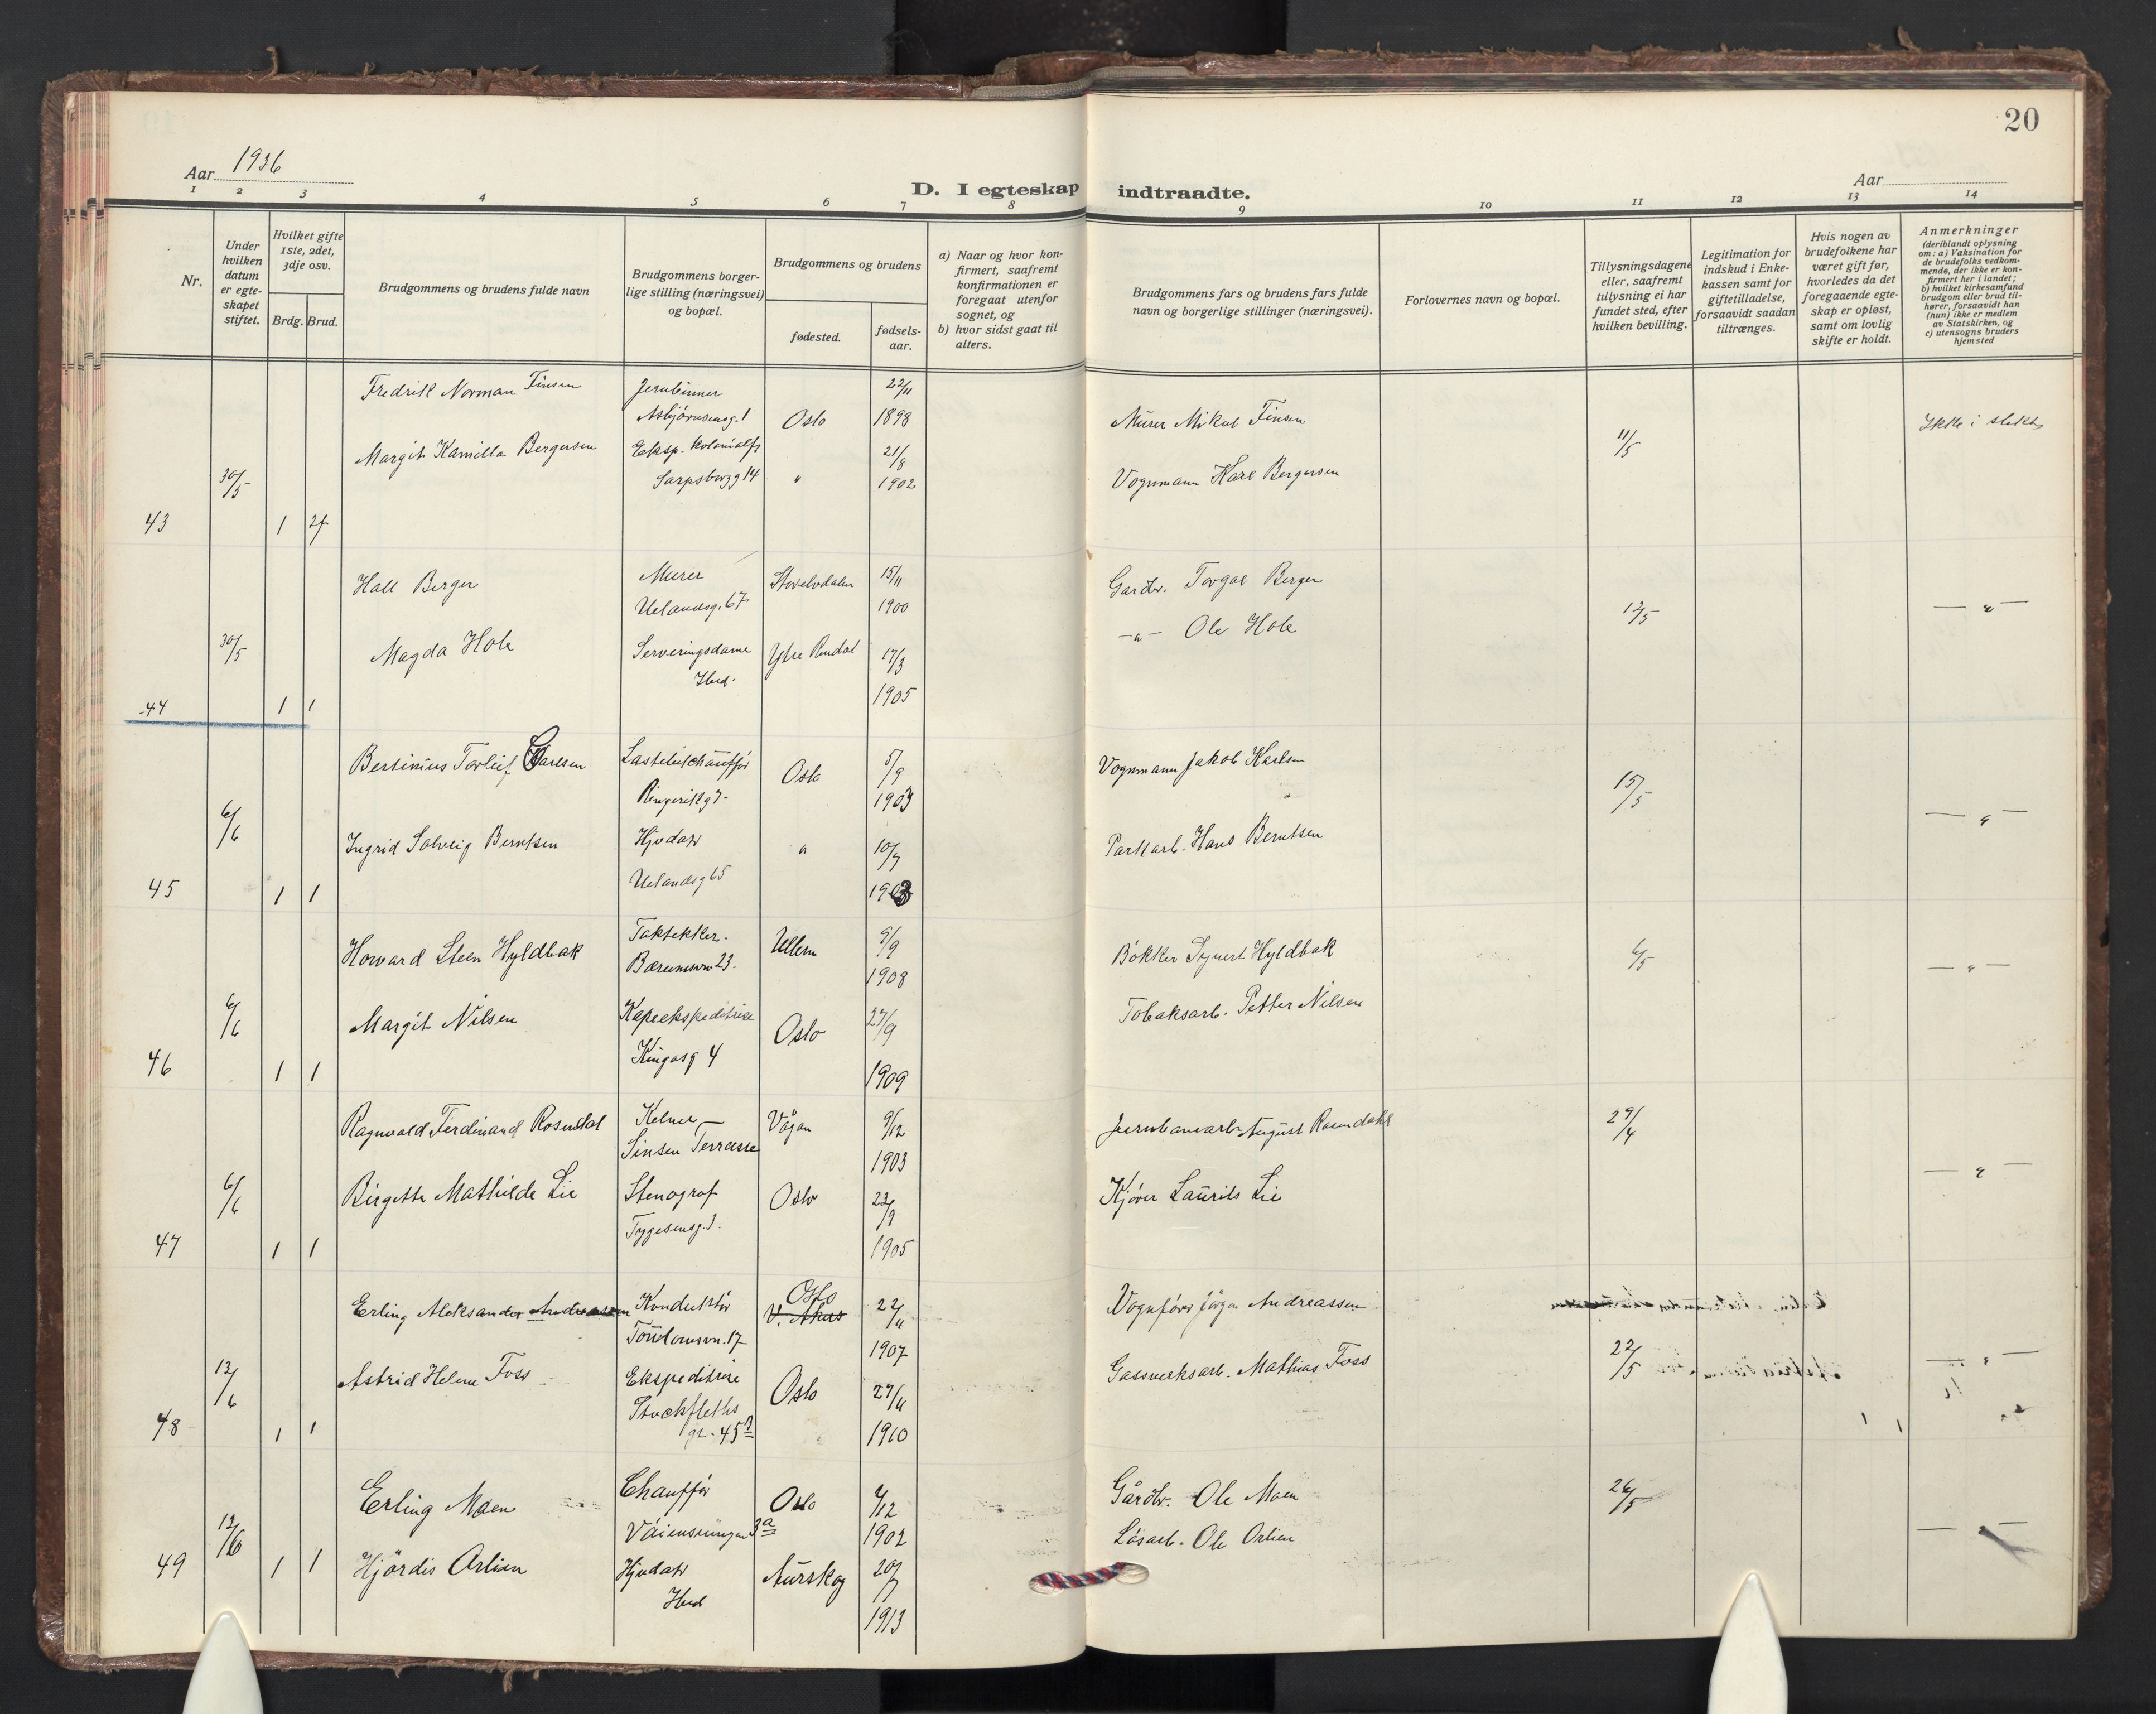 20
Aar 1936
Aar
D. I egteskap indtraadte.
1 2 3 4 5 6 7 8 9 10 11 12 13 14
Nr.
Under hvilken datum er egteskapet stiftet.
Hvilket gifte 1ste, 2det, 3dje osv.
Brdg. Brud.
Brudgommens og brudens fulde navn
Brudgommens borgerlige stilling (næringsvei) og bopæl.
Brudgommens og brudens
fødested.
fødselsaar.
a) Naar og hvor konfirmert, saafremt konfirmationen er foregaat utenfor sognet, og
b) hvor sidst gaat til alters.
Brudgommens fars og brudens fars fulde navn og borgerlige stillinger (næringsvei).
Forlovernes navn og bopæl.
Tillysningsdagene eller, saafremt tillysning ei har fundet sted, efter hvilken bevilling.
Legitimation for indskud i Enkekassen samt for giftetilladelse, forsaavidt saadan tiltrænges.
Hvis nogen av brudefolkene har været gift før, hvorledes da det foregaaende egteskap er opløst, samt om lovlig skifte er holdt.
Anmerkninger
(deriblandt oplysning om: a) Vaksination for de brudefolks vedkommende, der ikke er konfirmert her i landet; b) hvilket kirkesamfund brudgom eller brud tilhører, forsaavidt han (hun) ikke er medlem av Statskirken, og c) utensogns bruders hjemsted
Fredrik Norman Finsen Jernbinner 22/11
Asbjørnsensg. 1 Oslo 1898 Murer Mikal Finsen 11/5 Ikke i slekt
Margit Kamilla Bergersen Eksp. kolonialf 21/8
30/5 Sarpsborgg 14 " 1902 Vognmann Karl Bergersen
43 1 2f
Hall Berger Murer Storelvdalen 15/11 Gardbr. Torgal Berger
Uelandsg. 67 1900 12/5 — " —
30/5 Magda Hole Serveringsdame Ytre Rendal 17/3 —"— Ole Hole
Ibid.
44 1 1 1905
Bertinius Torleif Carlsen Lastebilchauffør Oslo 5/9 Vognmann Jakob Karlsen 15/5
Ringerikg 7 1903
6/6 — " —
Ingrid Solveig Berntsen Hjvdatr " 10/7 Parkarb. Hans Berntsen
Uelandsg 65
45 1 1 1903
Howard Steen Hyldbak Taktekker. Ullern 9/9 Bøkker Synert Hyldbak 6/5 — " —
Bærumsvn 23. 1908
6/6 Margit Nilsen Kapeekspeditrise Oslo 27/9 Tobaksarb. Petter Nilsen
Kingosg 4
46 1 1 1909
Ragnvald Ferdinand Rosendal Kelner Vågan 9/12 Jernbanearb. August Rosendahl 29/4
Sinsen Terrasse 1903 — " —
6/6 Birgette Mathilde Lie Stenograf Oslo 23/9 Kjører Laurits Lie
Tygesensg. 3.
47 1 1 1905
Erling Aleksander Andreassen Konduktør Oslo V. Aker 22/11 Vognfører Jörgen Andreassen
17 1907 22/5
12/6 Astrid Helene Foss Ekspeditrise Oslo 27/11 Gassverksarb. Mathias Foss — " —
Stockfleths
gt. 45 B
48 1 1 1910
Erling Moen Chauffør Oslo 4/12 Gårdbr. Ole Moen 26/5
3 a 1902
12/6 Løsarb. Ole Orlien — " —
49 1 1 Hjördis Orlien Hjvdatr Aurskog 20/7
Ibid
1913